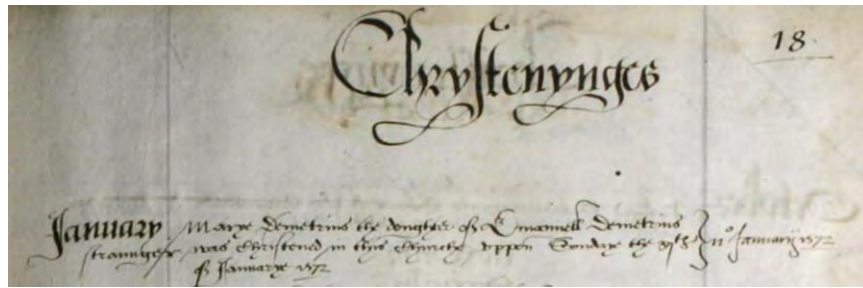 Chrystenynges
18
January Marye Demetrius the doughter of Emanuell Demetrius
straunger was Christened in this Churche uppon Sondaye the xjth 11o Januarij 1572
of Januarye 1572